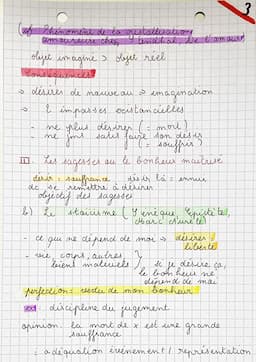 3
(cf Phénomène de la cristallisation
amoureuse chez Stendhal De l'amour
objet imaginé > objet réel
Conséquences
→ désirer de nouveau = imagination
→ 2 impasses existencielles
- ne plus désirer (= mort)
- ne pas satisfaire son désir
(= souffrir)
II. Les sagesses ou le bonheur maîtrisé
désir = souffrance désir là = ennui
dc se remettre à désirer
objectif des sagesses
b) Le stoïcisme (Sénèque, Epictète,
Marc Aurèle)
- ce qui ne dépend de moi → désirer :
liberté
- vie, corps, autres,
bient matériels } si je désire ça,
le bonheur ne
dépend de moi
perfection : rendu de mon bonheur
discipline du jugement
opinion : la mort de x est une grande
souffrance
: adéquation événement / représentation